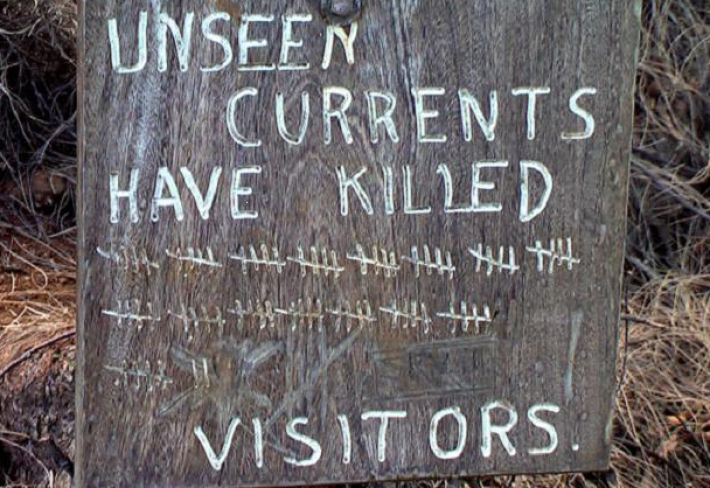 UNSEEN
CURRENTS
HAVE KILLED
VISITORS.